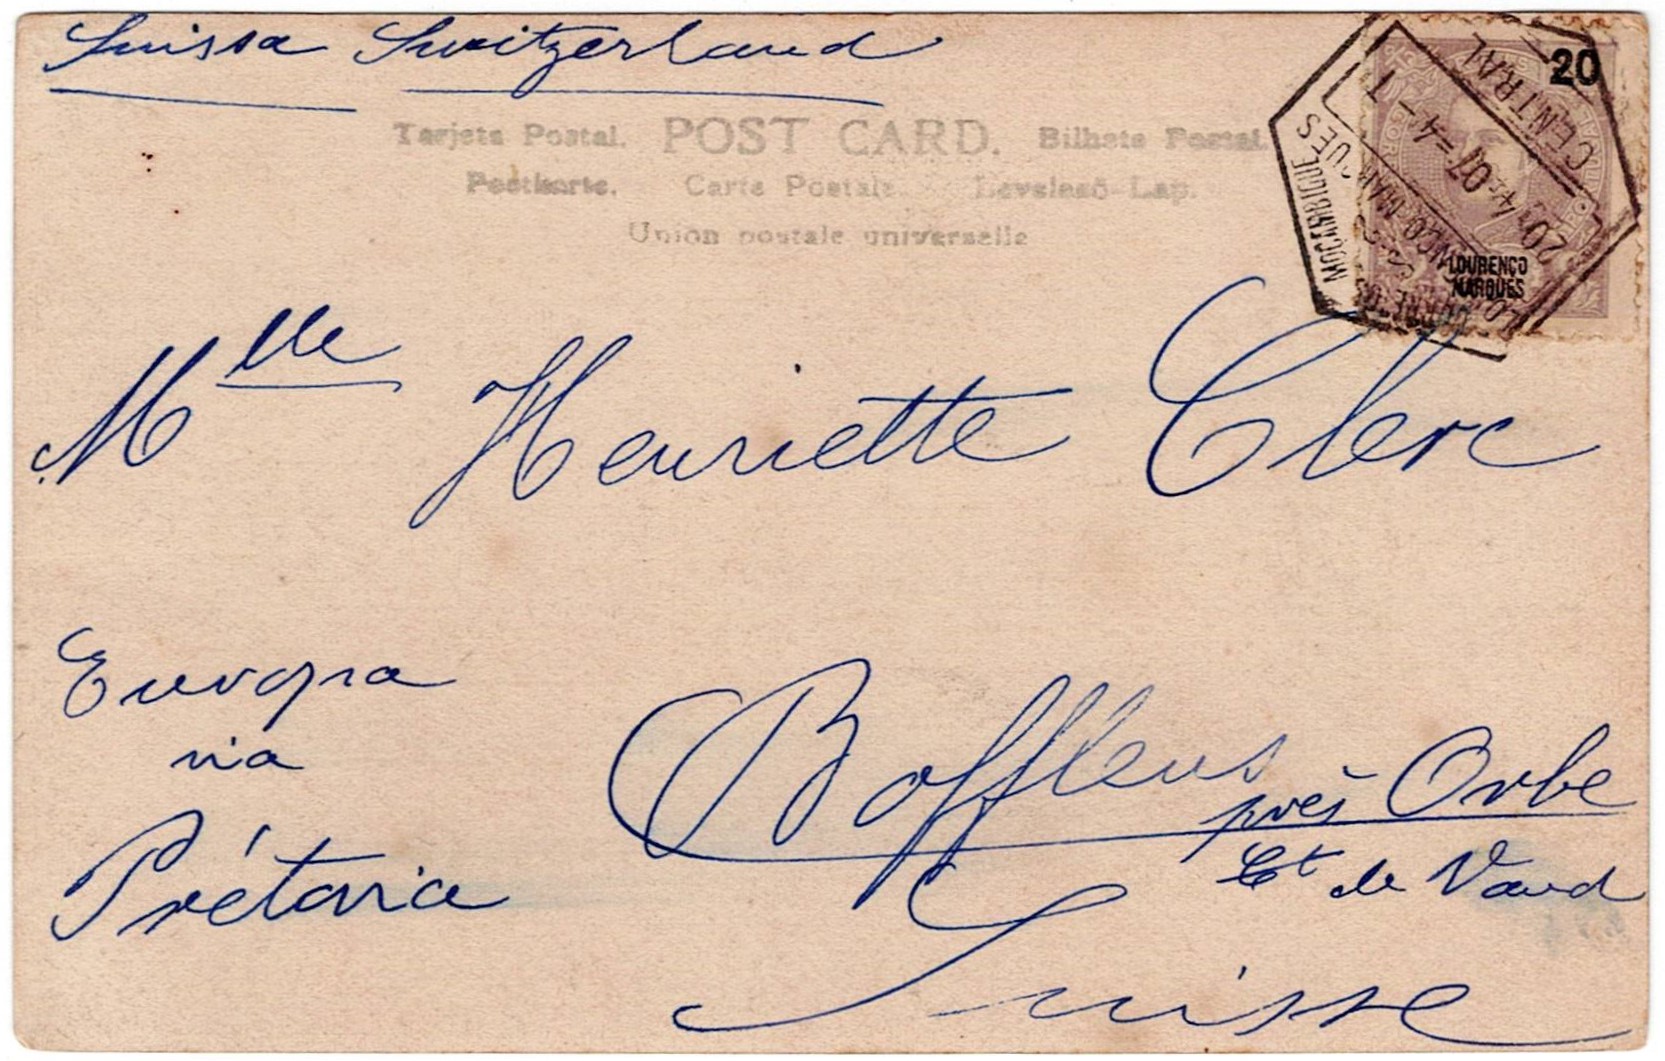 Suissa Switzerland
Tarjeta Postal. POST CARD. Bilhete Postal.
Postkarte. Carte Postale. Levelező-Lap.
Union postale universelle
20
LOURENÇO
MARQUES
MOÇAMBIQUE
CORREIOS
LOURENÇO MARQUES
20 4 07 = 4 - T
CENTRAL
Mlle Henriette Clerc
Europa
via
Prétoria
Boffleus
près Orbe
Ct de Vaud
Suisse